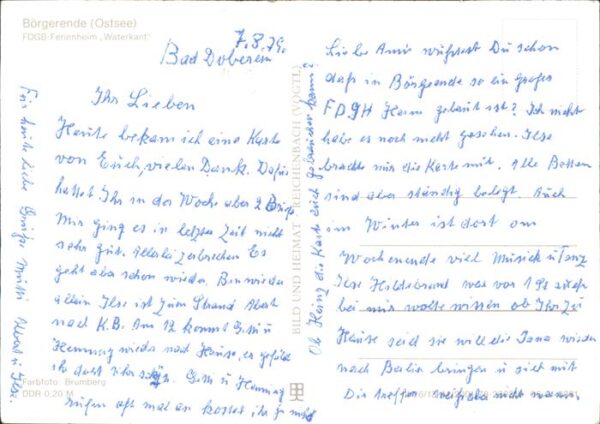 Börgerende (Ostsee)
FDGB-Ferienheim „Waterkant"
7.8.79.
Bad Doberan
Ihr Lieben
Heute bekam ich eine Karte
von Euch, vielen Dank. Dafür
hattet Ihr in der Woche aber 2 Briefe
Mir ging es in letzter Zeit nicht
sehr gut. Allerlei Es
geht aber schon wieder. Bin wieder
allein Ilse ist zum Strand Abert
nach K.B. Am 12 kommt G. u
Henning wieder nach Hause, es gefällt
ih dort sehr G. u Henning
rufen oft mal an kostet ihr ja nicht
Für heute liebe Grüße Mutti Abert u Ilse.
Farbfoto: Brumberg
DDR 0,20 M
BILD UND HEIMAT REICHENBACH (VOGTL)
Ob Heinz die Karte auch gebrauchen kann?
Liebe Ami wußtest Du schon
daß in Börgerende so ein großes
FDGH Heim gebaut ist? Ich nicht
habe es noch nicht gesehen. Ilse
brachte mir die Karte mit. Alle Betten
sind aber ständig belegt. Auch
im Winter ist dort am
Wochenende viel Musick u Tanz
Ilse Hildebrand war vor
bei mir wollte wissen ob Ihr zu
Hause seid sie will die Jana wieder
nach Berlin bringen u sich mit
Dir treffen weiß aber nicht wann.